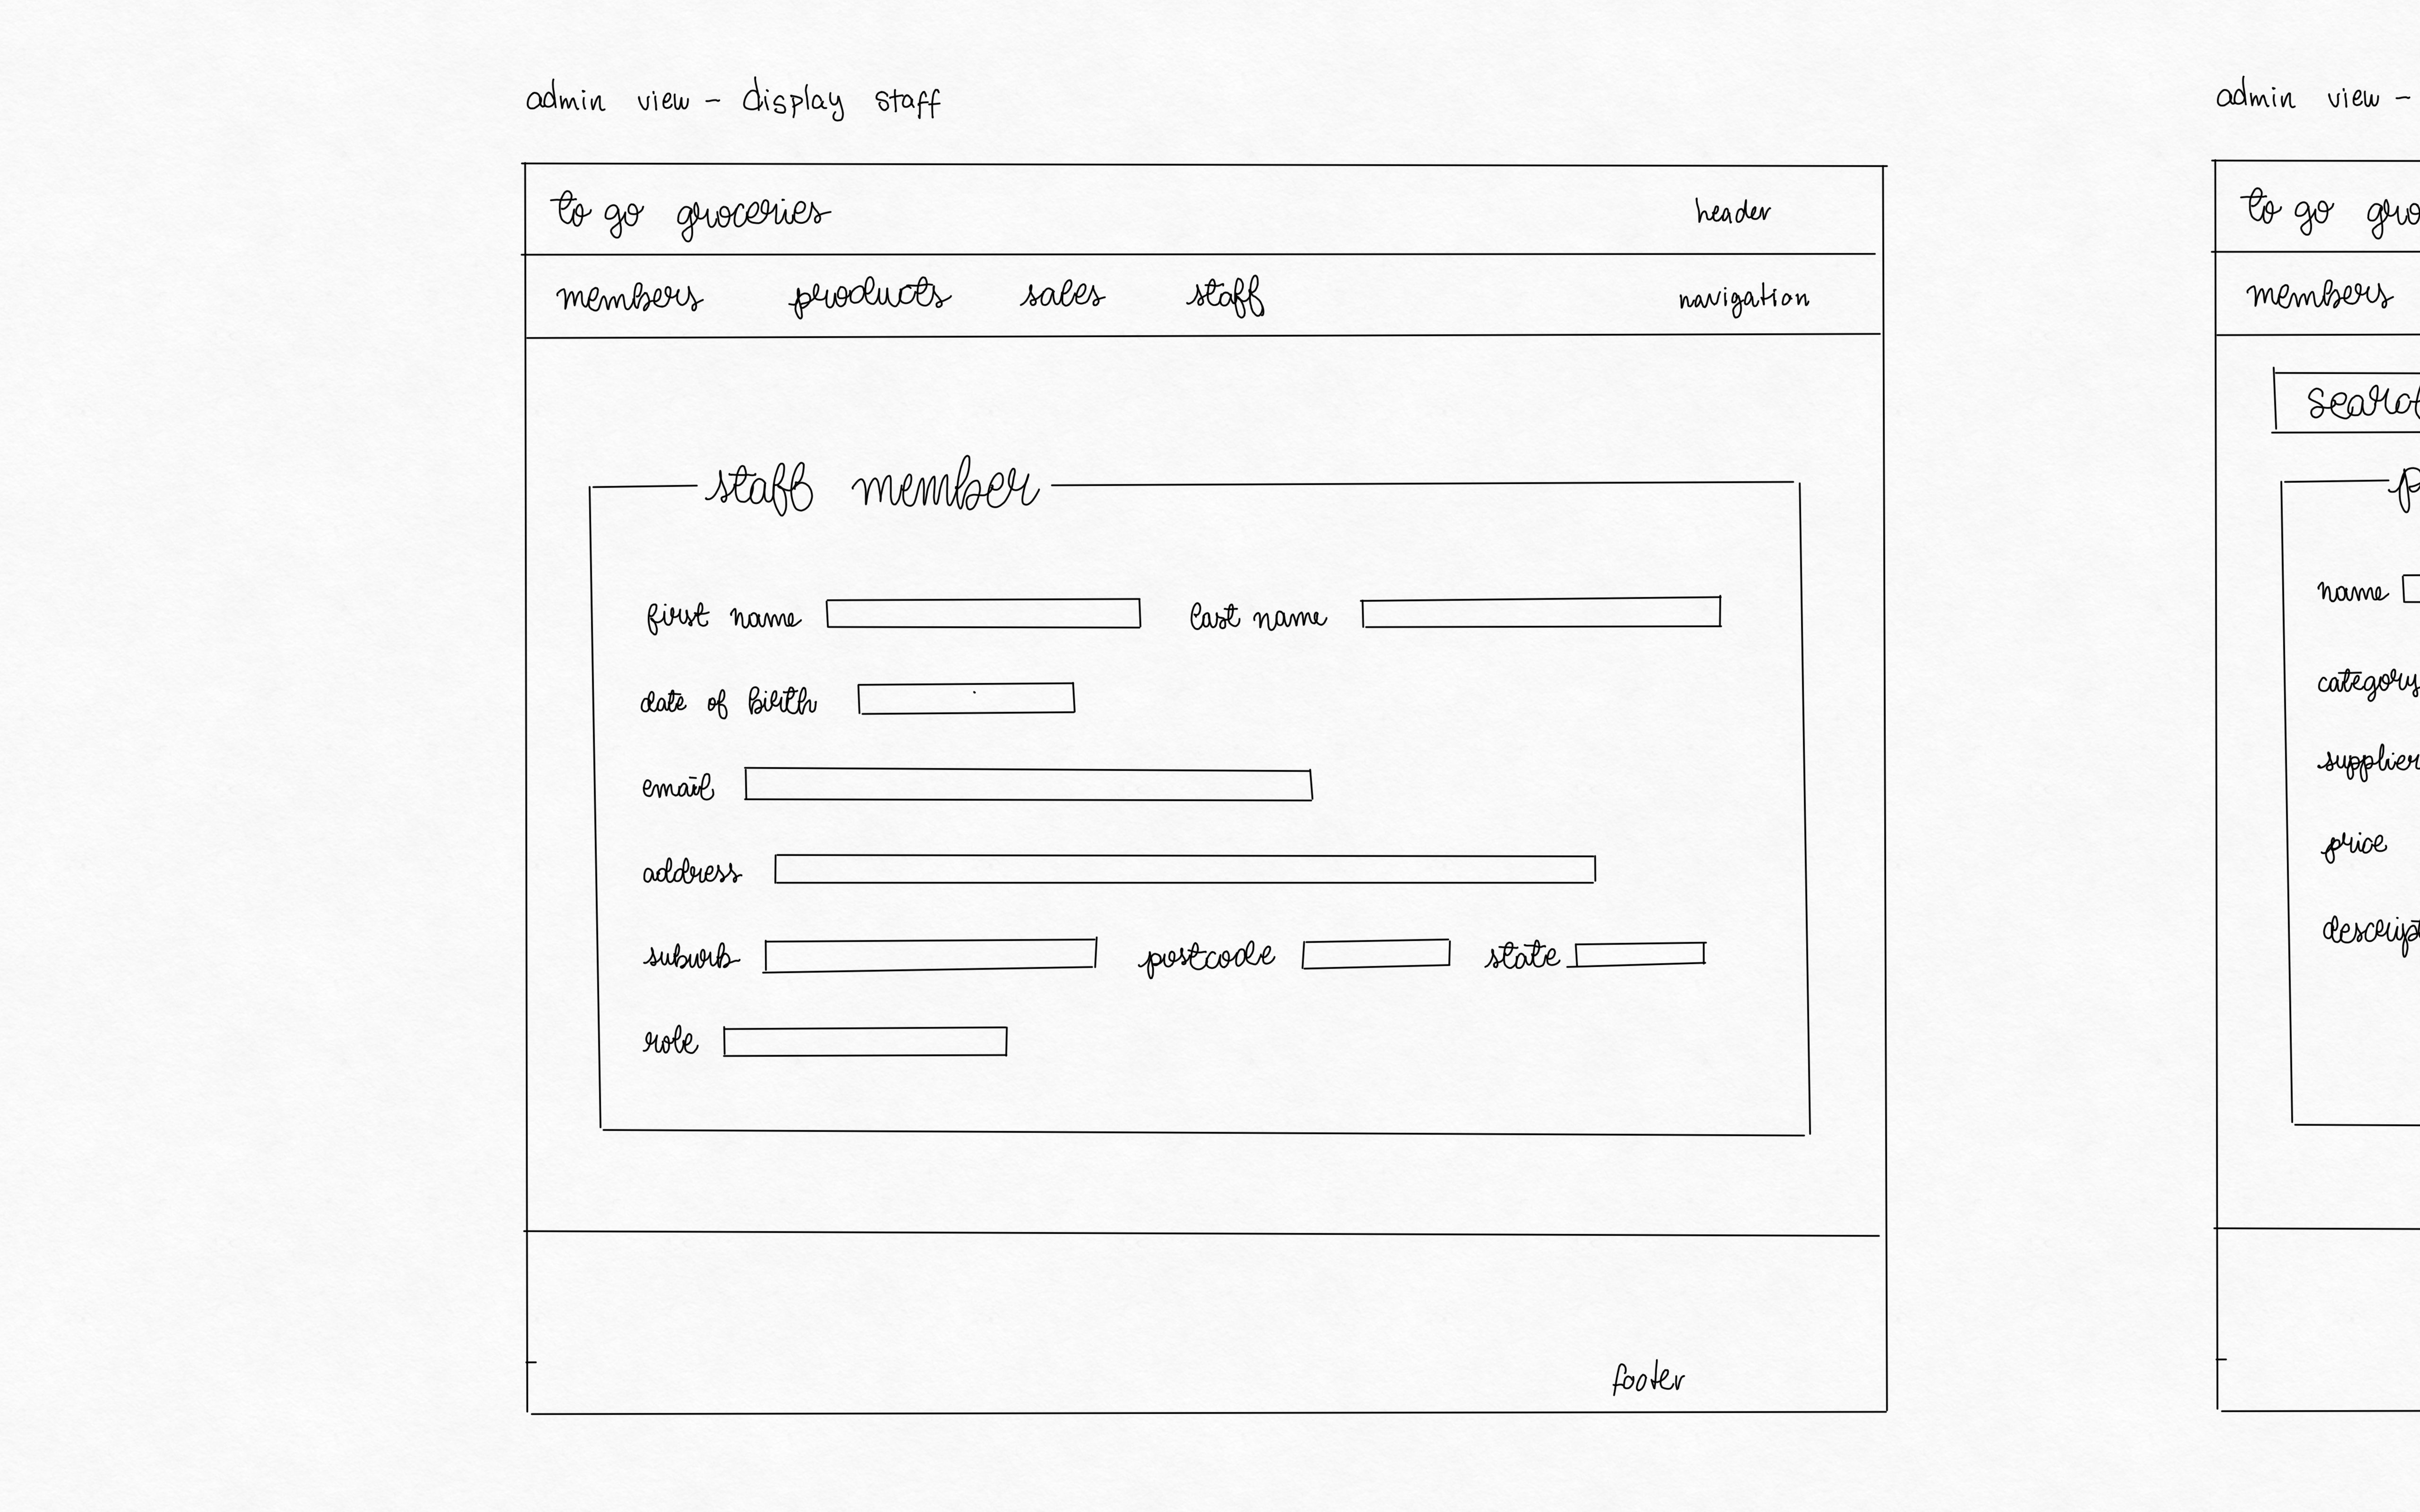 admin view - display staff
to go groceries header
members products sales staff navigation
staff member
first name last name
date of birth
email
address
suburb postcode state
role
footer
admin view -
to go
members
name
category
supplier
price